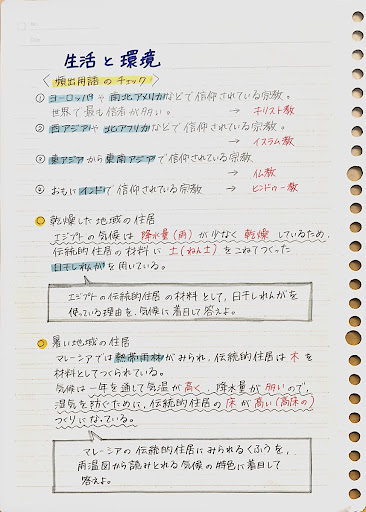 生活と環境
〈頻出用語のチェック〉
① ヨーロッパや南北アメリカなどで信仰されている宗教。
世界で最も信者が多い。 → キリスト教
② 西アジアや北アフリカなどで信仰されている宗教。
→ イスラム教
③ 東アジアから東南アジアで信仰されている宗教
→ 仏教
④ おもにインドで信仰されている宗教 → ヒンドゥー教
乾燥した地域の住居
エジプトの気候は降水量(雨)が少なく乾燥しているため、
伝統的住居の材料に土(ねん土)をこねてつくった
日干しれんがを用いている。
エジプトの伝統的住居の材料として、日干しれんがを
使っている理由を、気候に着目して答えよ。
暑い地域の住居
マレーシアでは熱帯雨林がみられ、伝統的住居は木を
材料としてつくられている。
気候は一年を通して気温が高く、降水量が多いので、
湿気を防ぐために、伝統的住居の床が高い(高床の)
つくりになっている。
マレーシアの伝統的住居にみられるくふうを、
雨温図から読みとれる気候の特色に着目して
答えよ。